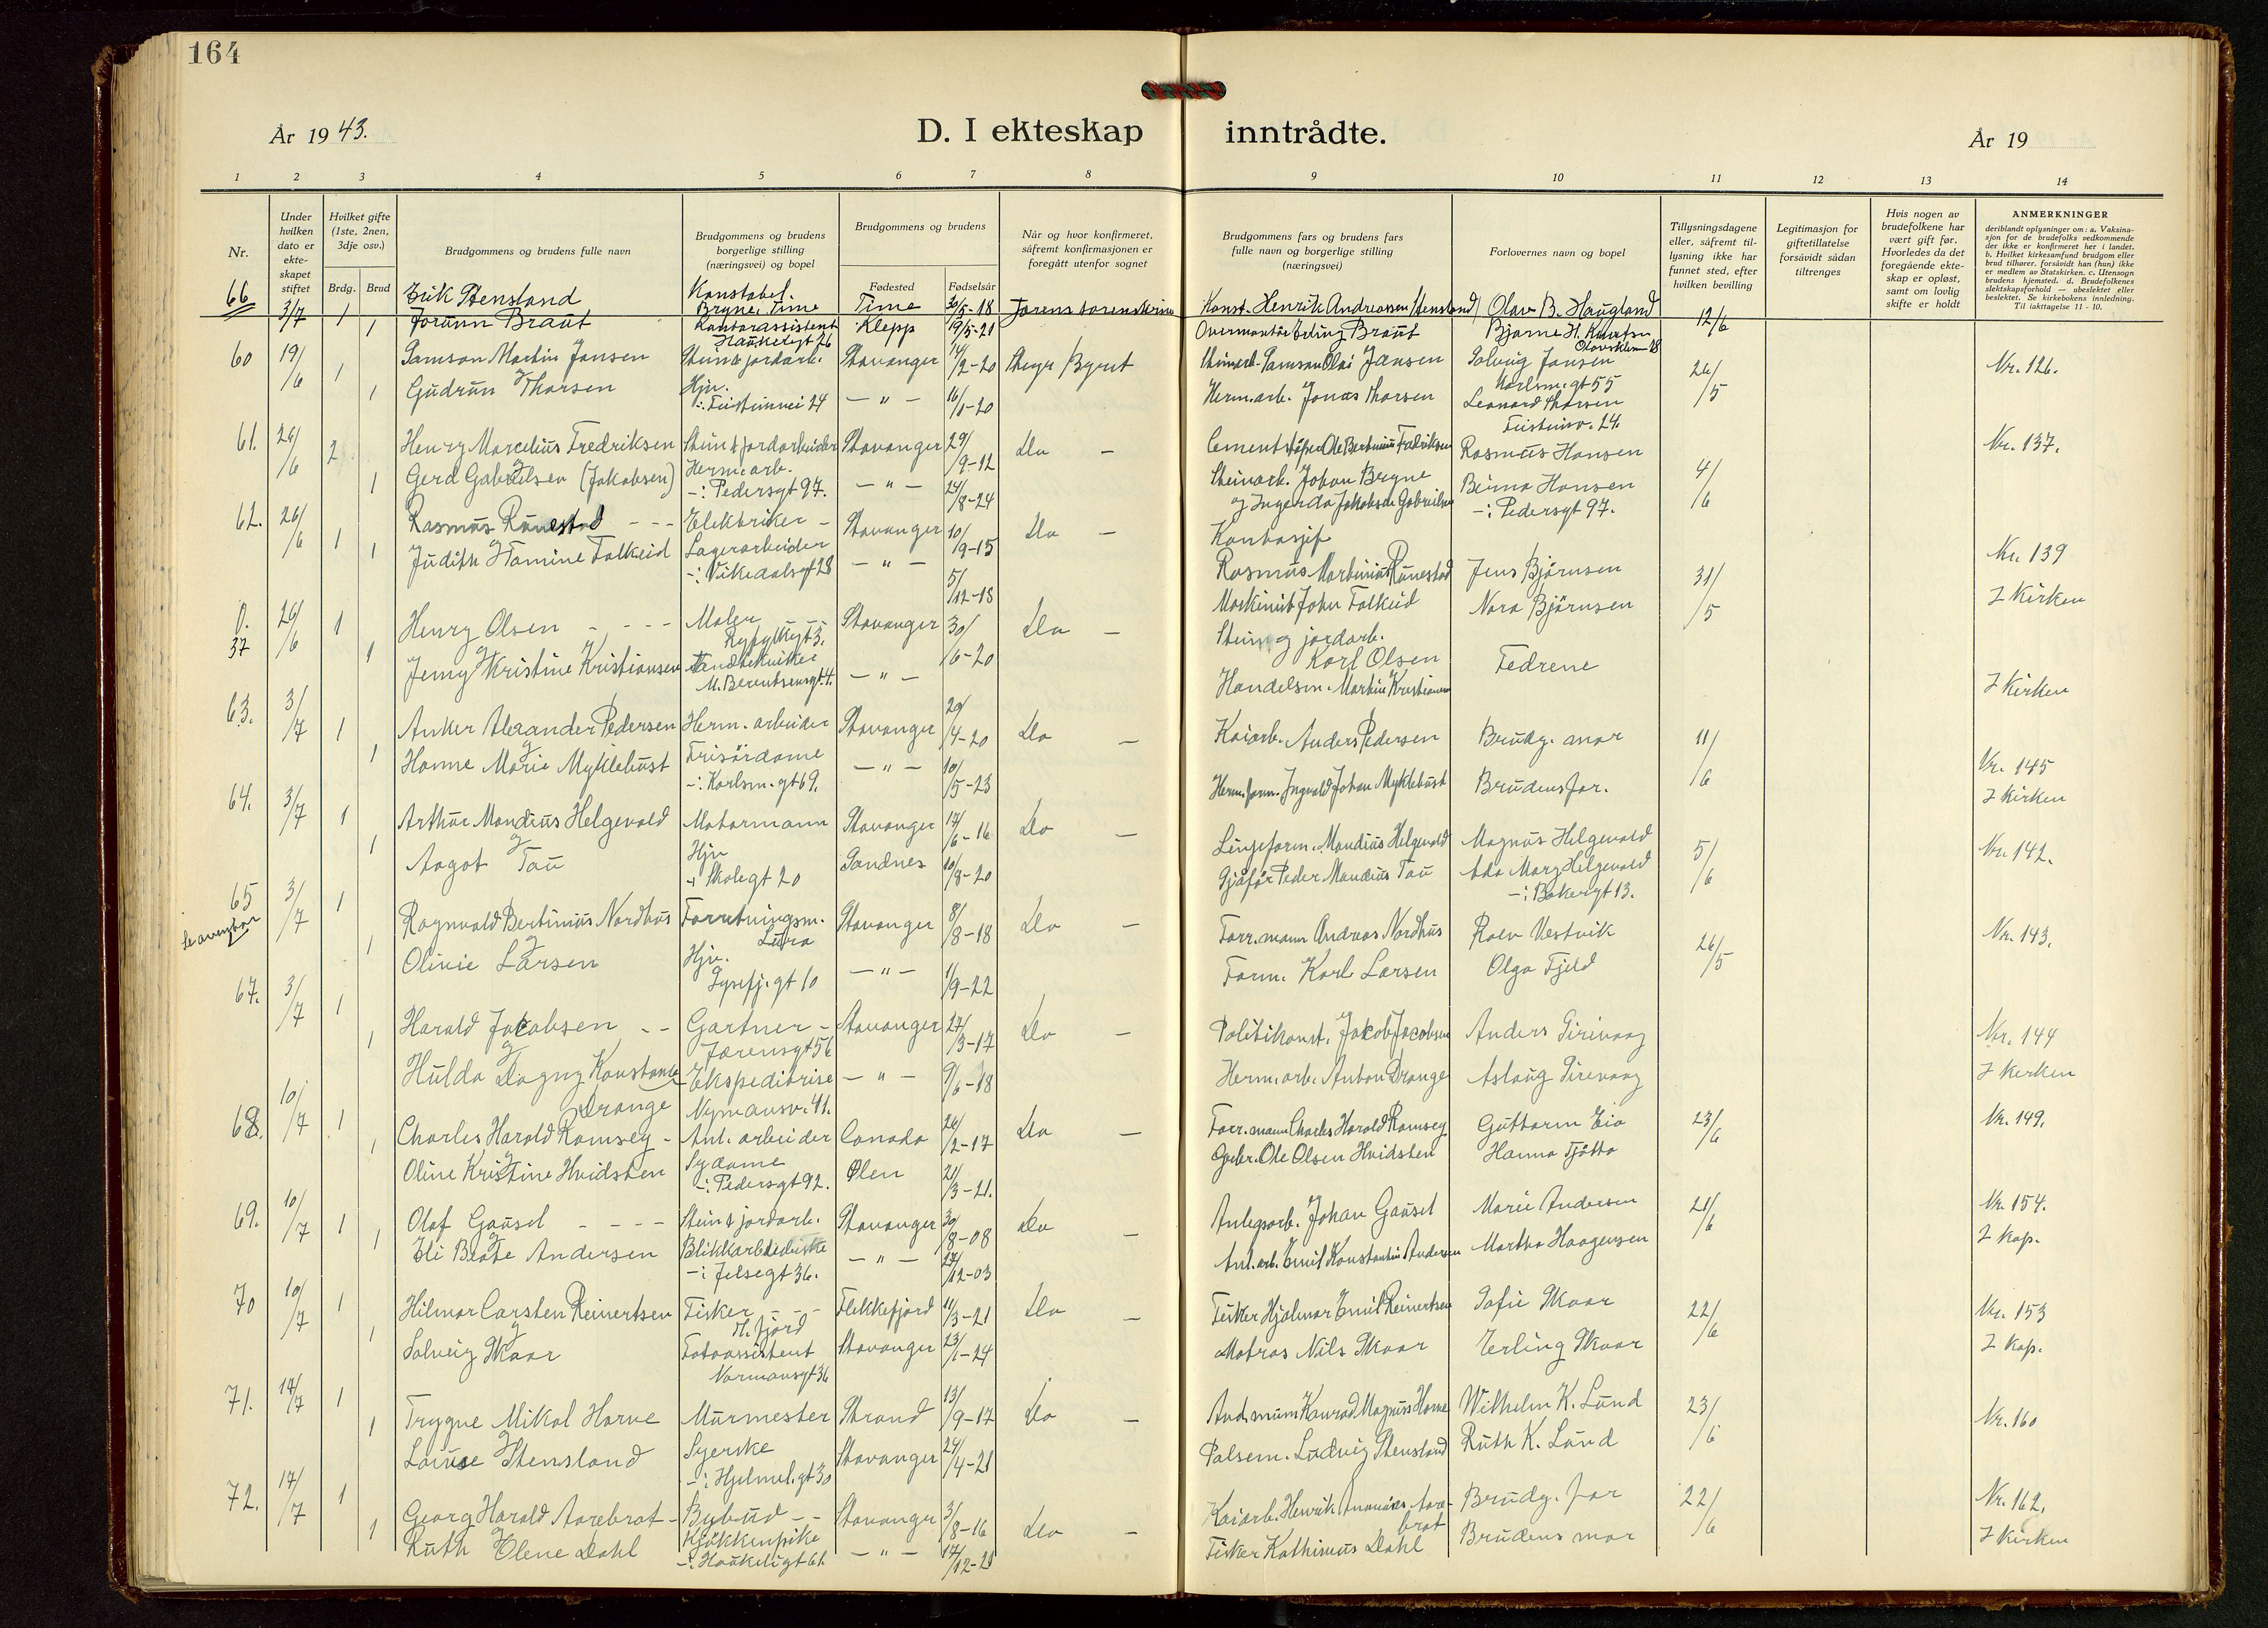 164
År 19 43.
D. I ekteskap inntrådte.
År 19
1 2 3 4 5 6 7 8 9 10 11 12 13 14
Nr.
Under hvilken dato er ekteskapet stiftet
Hvilket gifte (1ste, 2nen, 3dje osv.)
Brdg. Brud
Brudgommens og brudens fulle navn
Brudgommens og brudens borgerlige stilling (næringsvei) og bopel
Brudgommens og brudens
Fødested Fødselsår
Når og hvor konfirmeret, såfremt konfirmasjonen er foregått utenfor sognet
Brudgommens fars og brudens fars fulle navn og borgerlige stilling (næringsvei)
Forlovernes navn og bopel
Tillysningsdagene eller, såfremt tillysning ikke har funnet sted, efter hvilken bevilling
Legitimasjon for giftetillatelse forsåvidt sådan tiltrenges
Hvis nogen av brudefolkene har vært gift før. Hvorledes da det foregående ekteskap er opløst, samt om lovlig skifte er holdt
ANMERKNINGER
deriblandt oplysninger om: a. Vaksinasjon for de brudefolks vedkommende der ikke er konfirmeret her i landet. b. Hvilket kirkesamfund brudgom eller brud tilhører, forsåvidt han (hun) ikke er medlem av Statskirken. c. Utensogn brudens hjemsted. d. Brudefolkenes slektskapsforhold — ubeslektet eller beslektet. Se kirkebokens innledning. Til iakttagelse 11 - 10.
66 3/7 1 Erik Stensland Konstabel. Bryne, Time Time 30/5-18 Konst. Henrik Andreassen Stensland Olav B. Haugland 12/6
1 Jorunn Braut Kontorassistent Haukeligt 26 Klepp 19/5-21 Overmontør Erling Braut Bjarne H.
60 19/6 1 Samson Martin Jansen Stein & jordarb. Stavanger 14/2-20 Steinarb. Samson Olai Jansen Solveig Jansen Karlsm.gt 55 26/5 Nr. 126.
og
1 Gudrun Thorsen Hjv. -: Feisteinvei 24 — " — 16/1-20 Herm.arb. Jonas Thorsen Leonard Thorsen Feisteinv. 24.
61. 26/6 2 Henry Marcelius Fredriksen Stein & jordarbeider Stavanger 29/9-12 Do — Cementstøper Ole Bertinius Fredriksen Rasmus Hansen 4/6 Nr. 137.
1 Gerd Gabrielsen (Jakobsen) Herm.arb. -: Pedersgt 97. — " — 24/8-24 Steinarb. Johan Bryne og Ingerda Jakobsen Gabrielsen Hansen -: Pedersgt 97.
62. 26/6 1 Rasmus Runestad Elektriker Stavanger 10/9-15 Do — Kontorsjef Rasmus Martinius Runestad Jens Bjørnsen 31/5 Nr. 139
og
1 Judith Tomine Falkeid Lagerarbeider -: Vikedalsgt 28 — " — 5/12-18 Maskinist John Falkeid Nora Bjørnsen I Kirken
0. 37 26/6 1 Henry Olsen Maler Ryfylkegt 3. Stavanger 30/6-20 Do — Stein og jordarb. Karl Olsen Fedrene
og
1 Jenny Kristine Kristiansen Tandtekniker M. Berentsensgt. 4. — " — Handelsm. Martin Kristiansen I Kirken
63. 3/7 1 Anker Alexander Pedersen Herm. arbeider Stavanger 20/4-20 Do — Kaiarb. Anders Pedersen Brudg. mor 11/6 Nr. 145
og
1 Hanne Marie Myklebust Frisördame -: Karlsm.gt 69. — " — 10/5-23 Herm.form. Ingvald Johan Myklebust Brudens far. I Kirken
64. 3/7 1 Arthur Mandius Helgevold Motormann Stavanger 17/6-16 Do — Linjeform. Mandius Helgevold Magnus Helgevold 5/6 Nr. 142.
og
1 Aagot Tau Hjv -: Skolegt 20 Sandnes 10/8-20 Peder Mandius Tau Ada Mary Helgevold -: Bakergt 13.
65 3/7 1 Ragnvald Bertinius Nordhus Forretningsm. Lura Stavanger 8/8-18 Do — Forr.mann Andreas Nordhus Rolv Vestvik 26/5 Nr. 143.
og
1 Olivie Larsen Hjv. Lysefj.gt 10 — " — 1/9-22 Form. Karl Larsen Olga Fjeld
67. 3/7 1 Harald Jakobsen Gartner Jærensgt 56 Stavanger 27/3-17 Do — Politikonst. Jakob Jacobsen Anders Sirevaag Nr. 144
og
1 Hulda Dagny Konstanse Drange Ekspeditrise Nymansv. 41. — " — 9/6-18 Herm.arb. Anton Drange Aslaug Sirevaag I Kirken
68. 10/7 1 Charles Harold Ramsey Anl. arbeider Canada 26/2-17 Do — Forr.mann Charles Harold Ramsey Guttorm Eia 23/6 Nr. 149.
og
1 Oline Kristine Hvidsten Sydame -: Pedersgt 92. Ølen 21/3-21. Gbr. Ole Olsen Hvidsten Hanna Tjøtta
69. 10/7 1 Olaf Gausel Stein & jordarb. Stavanger 30/8-08 Do — Anlegsarb. Johan Gausel Marie Andersen 21/6 Nr. 154.
og
1 Eli Beate Andersen -: Jelsegt 36. — " — 27/12-03 Anl.arb. Emil Konstantin Andersen Martha Haagensen I Kap.
70 10/7 1 Hilmar Carsten Reinertsen Fisker Fl.fjord Flekkefjord 11/3-21 Do — Fisker Hjalmar Emil Reinertsen Sofie Skaar 22/6 Nr. 153
og
1 Solveig Skaar Fotoassistent Normansgt 36 Stavanger 23/1-24 Matros Nils Skaar Erling Skaar I Kap.
71. 17/7 1 Trygve Mikal Horve Murmester Strand 13/9-17 Do — Konrad Magnus Horve Wilhelm K. Lund 23/6 Nr. 160
og
1 Louise Stensland Syerske -: Hjelmel.gt 30 Stavanger 24/4-21 Pølsem. Ludvig Stensland Ruth K. Lund
72. 17/7 1 Georg Harald Aarebrot Bybud Stavanger 3/8-16 Do — Kaiarb. Henrik Aarebrot Brudg. far 22/6 Nr. 162.
og
1 Ruth Elene Dahl Kjøkkenpike -: Haukeligt 61. — " — 17/12-21 Fisker Kathinius Dahl Brudens mor I Kirken